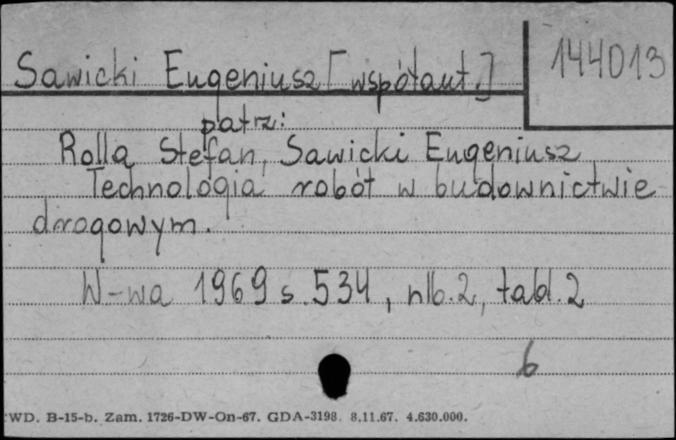 144013
Sawicki Eugeniusz [współaut.]
patrz:
Rolla Stefan, Sawicki Eugeniusz
Technologia robót w budownictwie
drogowym.
W-wa 1969 s. 534, nlb. 2, tabl. 2
6
WD. B-15-b. Zam. 1726-DW-On-67. GDA-3198. 8.11.67. 4.630.000.